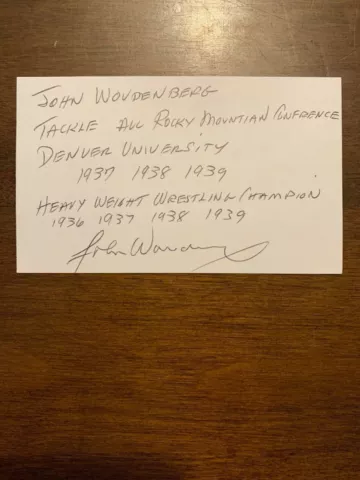 John Woudenberg
Tackle All Rocky Mountian Confrence
Denver University
1937 1938 1939
Heavy Weight Wrestling Champion
1936 1937 1938 1939
John Woudenberg